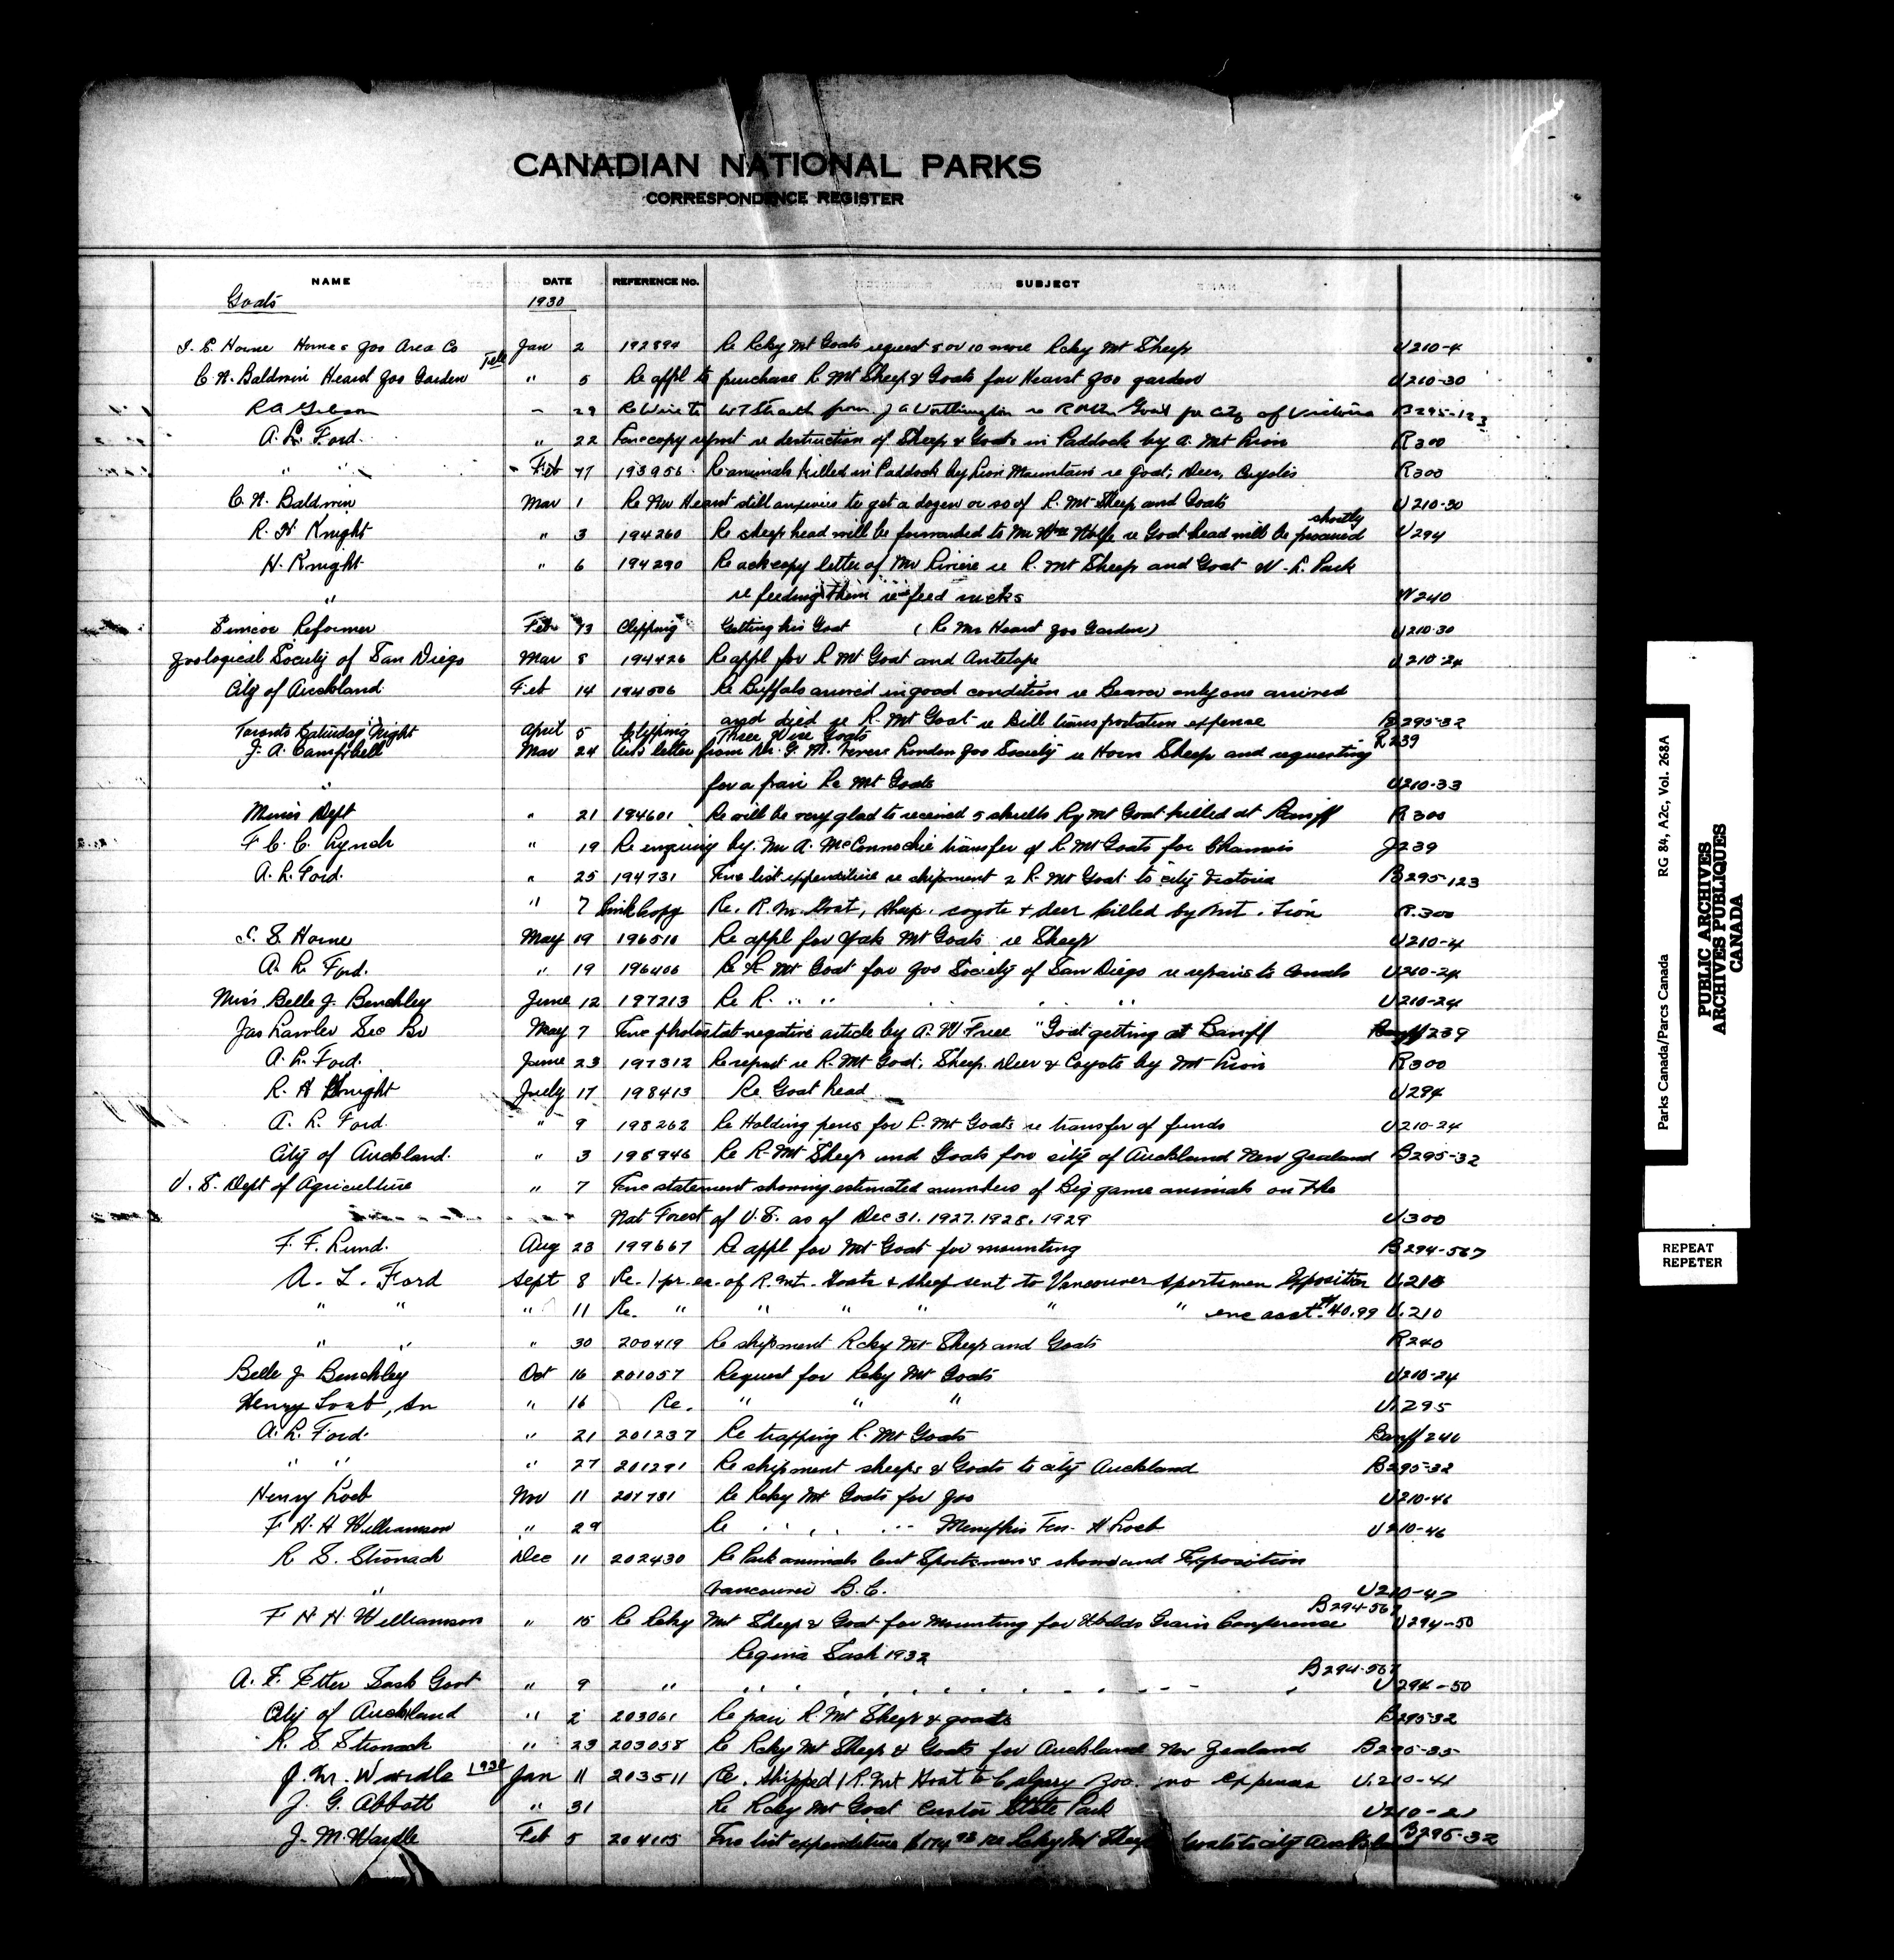 CANADIAN NATIONAL PARKS
CORRESPONDENCE REGISTER
NAME DATE REFERENCE No. SUBJECT
Goats 1930
Horne Zoo Area Co Jan 2 192899 Re Rcky Mt Goats request 5 or 10 more Rcky Mt Sheep U210-4
C. A. Baldwin Hearst Zoo Garden Feb " 5 Re appl to purchase R Mt Sheep & Goats for Hearst Zoo garden U210-30
R A Gibson " 29 Re Wire to from J A Worthington re R Mtn Goat for City of Victoria B295-123
A. L. Ford. " 22 Enc copy report re destruction of Sheep & Goats in Paddock by a Mt Lion R300
" " Feb 17 193956 Re animals killed in Paddock by Lion Mountain re goat, Deer, Coyotes R300
C. A. Baldwin Mar 1 Re Mr Hearst still anxious to get a dozen or so of R. Mt Sheep and Goats U210-30
R. H Knight " 3 194260 Re sheep head will be forwarded to Mr Wm Wolfe re Goat head will be procured shortly U294
H. Knight " 6 194290 Re ack copy letter of Mr Riviere re R. Mt Sheep and Goat W. L. Park
" re feeding them re feed racks W240
Simcoe Reformer Feb 13 Clipping Getting his Goat (Re Mr Hearst Zoo Garden) U210-30
Zoological Society of San Diego Mar 8 194426 Re appl for R Mt Goat and Antelope U210-24
City of Auckland Feb 14 194506 Re Buffalo arrived in good condition re Beaver only one arrived
and died re R. Mt Goat re Bill transportation expense B295-32
Toronto Saturday Night April 5 Clipping Three Wise Goats R239
J. A. Campbell Mar 24 letter from Mr. G. M. London Zoo Society re Horn Sheep and requesting
" for a pair Re Mt Goats U210-33
Mines Dept " 21 194601 Re will be very glad to received 5 skulls Ry Mt Goat killed at Banff R300
F. C. C. Lynch " 19 Re enquiry by Mr A. McConnochie transfer of R Mt Goats for Chamois J239
A. L. Ford. " 25 194731 Enc list expenditure re shipment 2 R. Mt Goat to city Victoria B295-123
" 7 Pink Copy Re. R. M. Goat, sheep, coyote & deer killed by Mt. Lion R.300
I. S. Horne May 19 196510 Re appl for Yak Mt Goats re Sheep U210-4
A. L. Ford. " 19 196406 Re R Mt Goat for Zoo Society of San Diego re repairs to Corrals U210-24
Miss Belle J. Benchley June 12 197213 Re R. " " " " " U210-24
Jas Lawler Sec Bv May 7 Enc photostat negative article by A. W. "Goat getting at Banff Banff 239
A. L. Ford. June 23 197312 Re report re R. Mt Goat, Sheep. Deer & Coyote by Mt Lion R300
R. H Knight July 17 198413 Re Goat head U294
A. L. Ford. " 9 198262 Re Holding pens for R. Mt Goats re transfer of funds U210-24
City of Auckland. " 3 198946 Re R. Mt Sheep and Goats for city of Auckland New Zealand B295-32
U. S. Dept of Agriculture " 7 Enc statement showing estimated numbers of Big game animals on the
Nat Forest of U.S. as of Dec 31. 1927. 1928. 1929 U300
F. F. Lund. Aug 23 199667 Re appl for Mt Goat for mounting B294-567
A. L. Ford Sept 8 Re. 1 pr. ea. of R. Mt. Goats & sheep sent to Vancouver Sportsmen Exposition U.210
" " " 11 Re. " " " " " " enc acct. $40.99 U.210
" " " 30 200419 Re shipment Rcky Mt Sheep and Goats R240
Belle J Benchley Oct 16 201057 Request for Rcky Mt Goats U210-24
Henry Loeb, Sr " 16 Re. " " " U.295
A. L. Ford. " 21 201237 Re trapping R. Mt Goats Banff 240
" " " 27 201291 Re shipment sheep & Goats to city Auckland B295-32
Henry Loeb Nov 11 201731 Re Rcky Mt Goats for Zoo U210-46
F. H. H Williamson " 29 Re " " " " Memphis Ten. H Loeb U210-46
R S. Stronach Dec 11 202430 Re Park animals lent Sportsmen's show and Exposition
" Vancouver B.C. U210-47
F H H. Williamson " 15 Re Rcky Mt Sheep & Goat for Mounting for Worlds Grain Conference B294-567 U294-50
Regina Sask 1932
A. F. Etter Sask Govt " 9 " " " " " " " B294-567 U294-50
City of Auckland " 2 203061 Re pair R. Mt Sheep & goats B295-32
R. S. Stronach " 23 203058 Re Rcky Mt Sheep & Goats for Auckland New Zealand B295-35
J. M. Wardle Jan 11 203511 Re. shipped 1 R. Mt Goat to Calgary Zoo. no expenses U.210-41
J. G. Abbott " 31 Re Rcky Mt Goat Custer State Park
J. M. Wardle Feb 5 Enc list expenditure re Rcky Mt Sheep Goats to city Auckland B295-32
Parks Canada/Parcs Canada RG 84, A2c, Vol. 268A
PUBLIC ARCHIVES
ARCHIVES PUBLIQUES
CANADA
REPEAT
REPETER